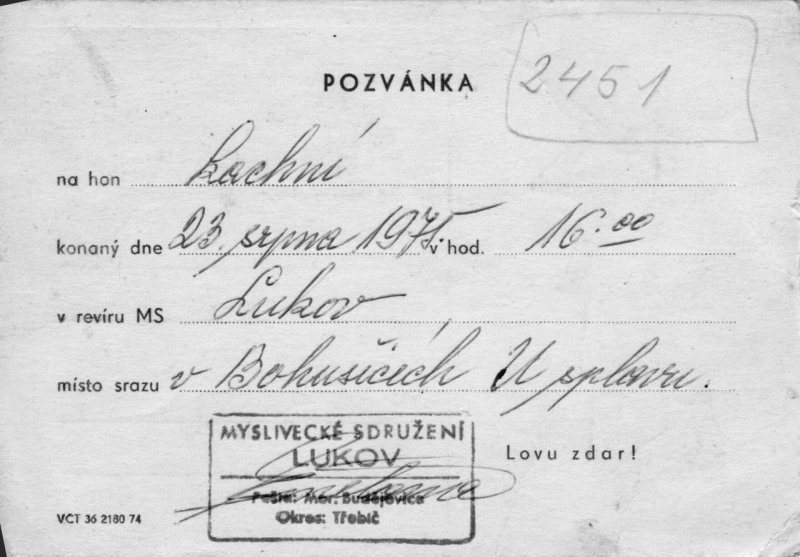 2451
POZVÁNKA
na hon kachní
konaný dne 23. srpna 1975 v hod. 16.00
v revíru MS Lukov
místo srazu v Bohušicích U splavu.
MYSLIVECKÉ SDRUŽENÍ
LUKOV
Lovu zdar!
Pošta: Mor. Budějovice
Okres: Třebíč
VČT 36 2180 74